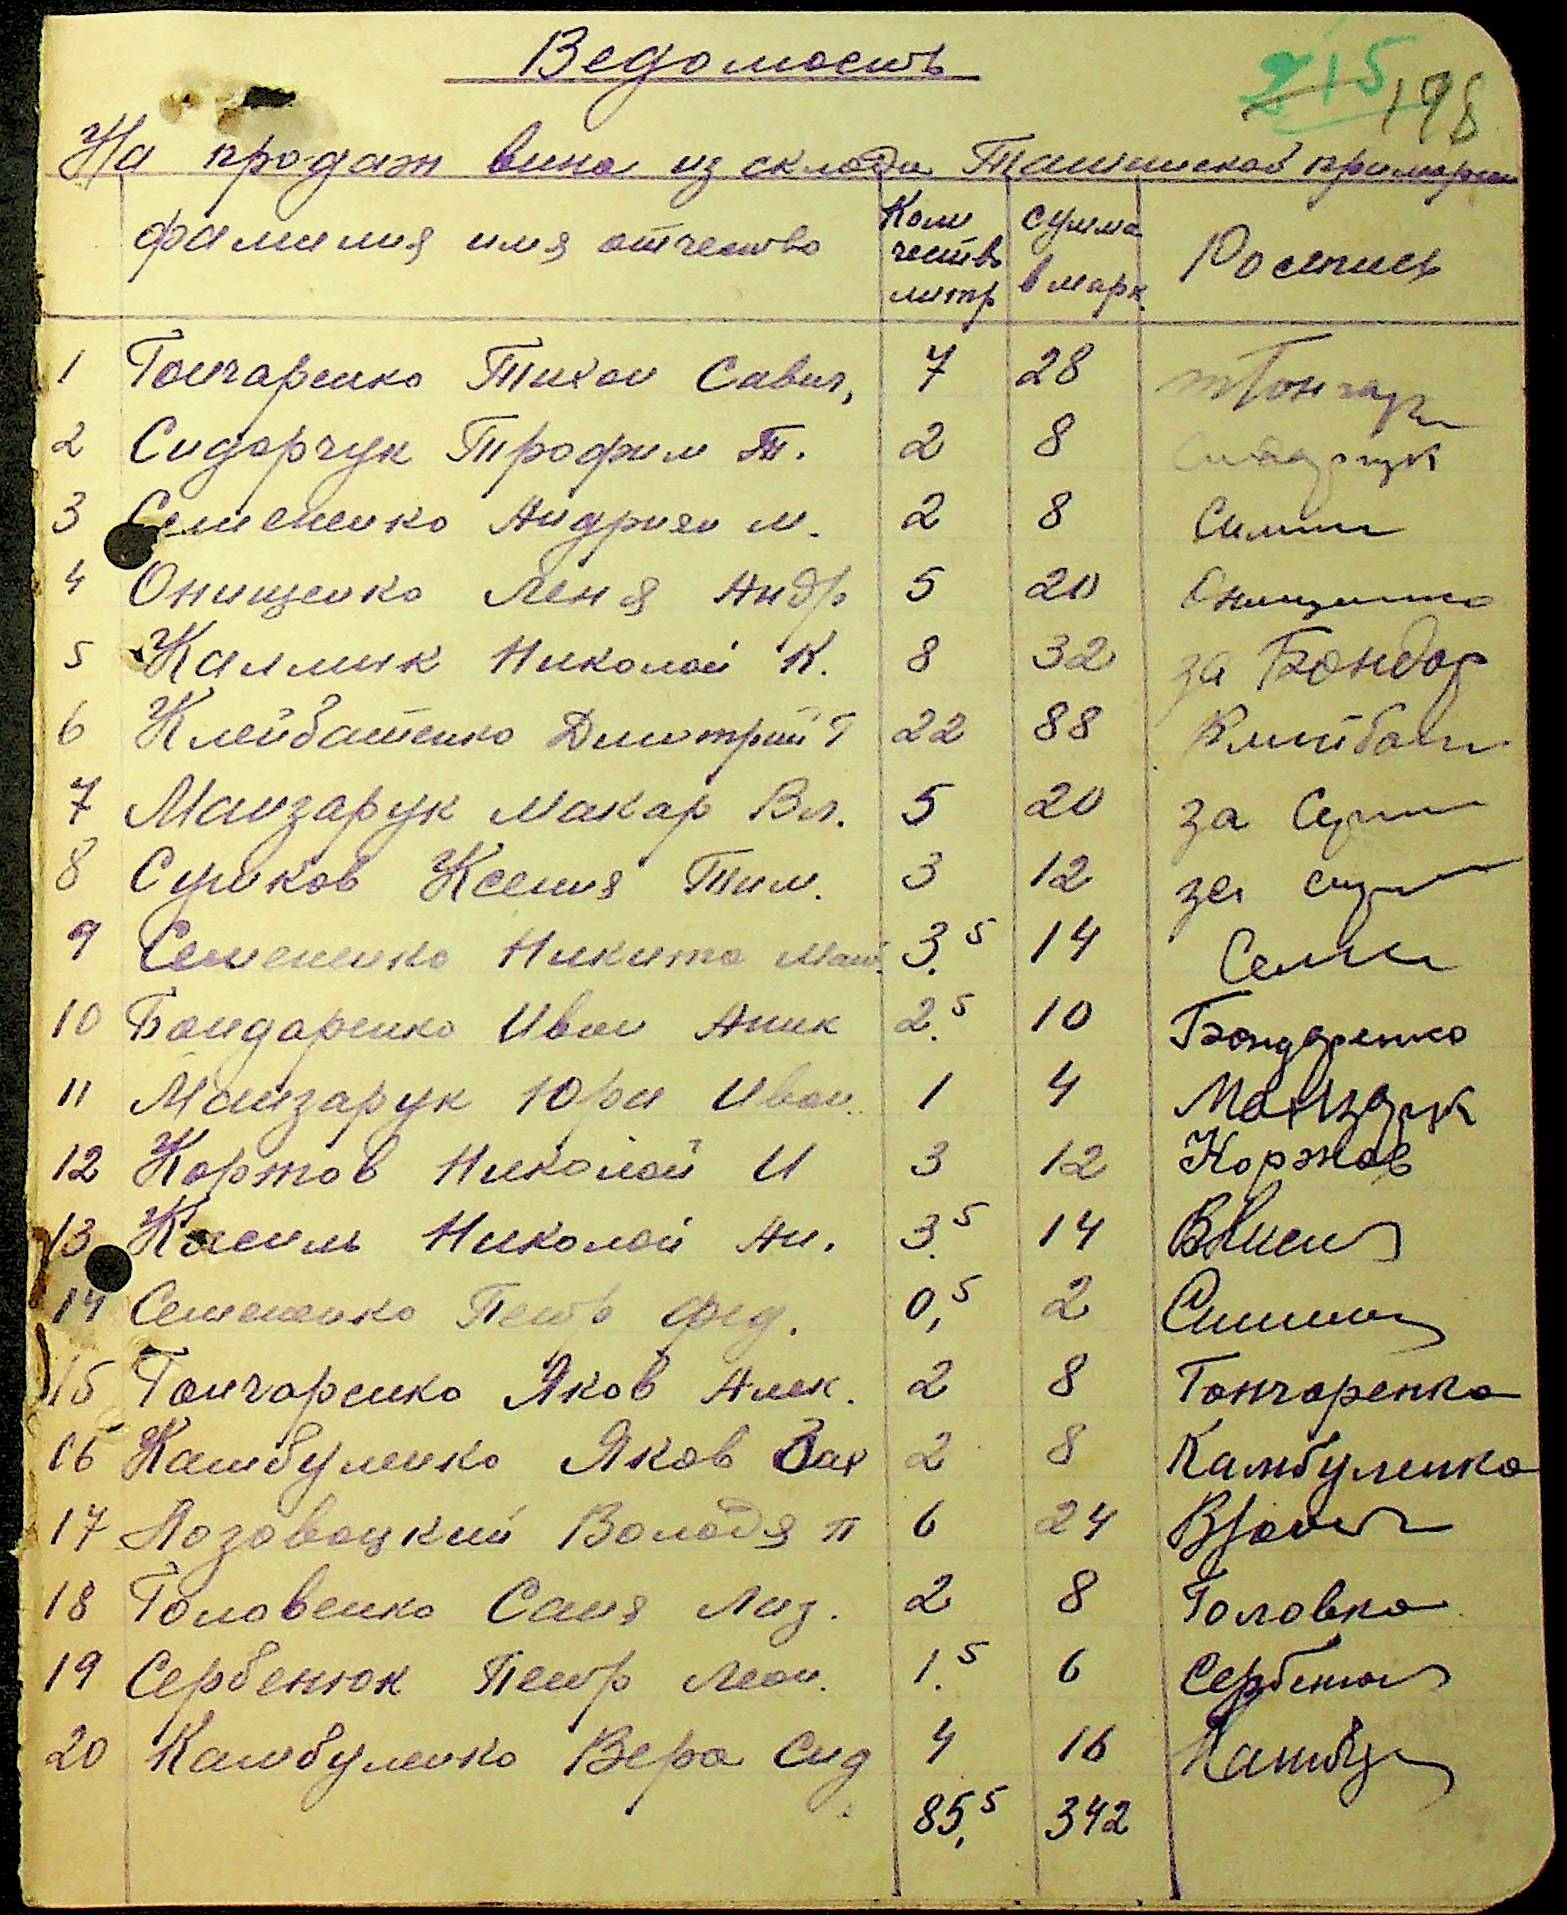 Ведомость
215 198
На продаж вина из склада примарии
фамилия имя отчество Коли честв литр сумма в марк. Роспись
1 Гончаренко Тихон Савил, 7 28 тГончар
2 Сидорчук Трофим Т. 2 8 Сидорчук
3 Семененко Андриян м. 2 8
4 Онищенко Леня Андр 5 20 Онищенко
5 Калмык Николай К. 8 32 за Бондар
6 Клейбашенко Дмитрий Т 22 88 Клейбаш
7 Манзарук Макар Вл. 5 20 за
8 Суриков Ксения Тим. 3 12 за
9 Семененко Никита Мат. 3.5 14 Семен
10 Бондаренко Иван Аник 2.5 10 Бондаренко
11 Манзарук Юри Иван. 1 4 Манзарук
12 Коржов Николай И 3 12 Коржов
13 Кисиль Николай Ан. 3.5 14
14 Семененко Петр Фед. 0,5 2
15 Гончаренко Яков Алек. 2 8 Гончаренко
16 Камбуленко Яков Зах 2 8 Камбуленко
17 Лозовацкий Володя п 6 24
18 Головенко Саня Лаз. 2 8 Головко
19 Сербенюк Петр Леон. 1.5 6 Сербенюк
20 Камбуленко Вера Сид 4 16 Камбу
85,5 342